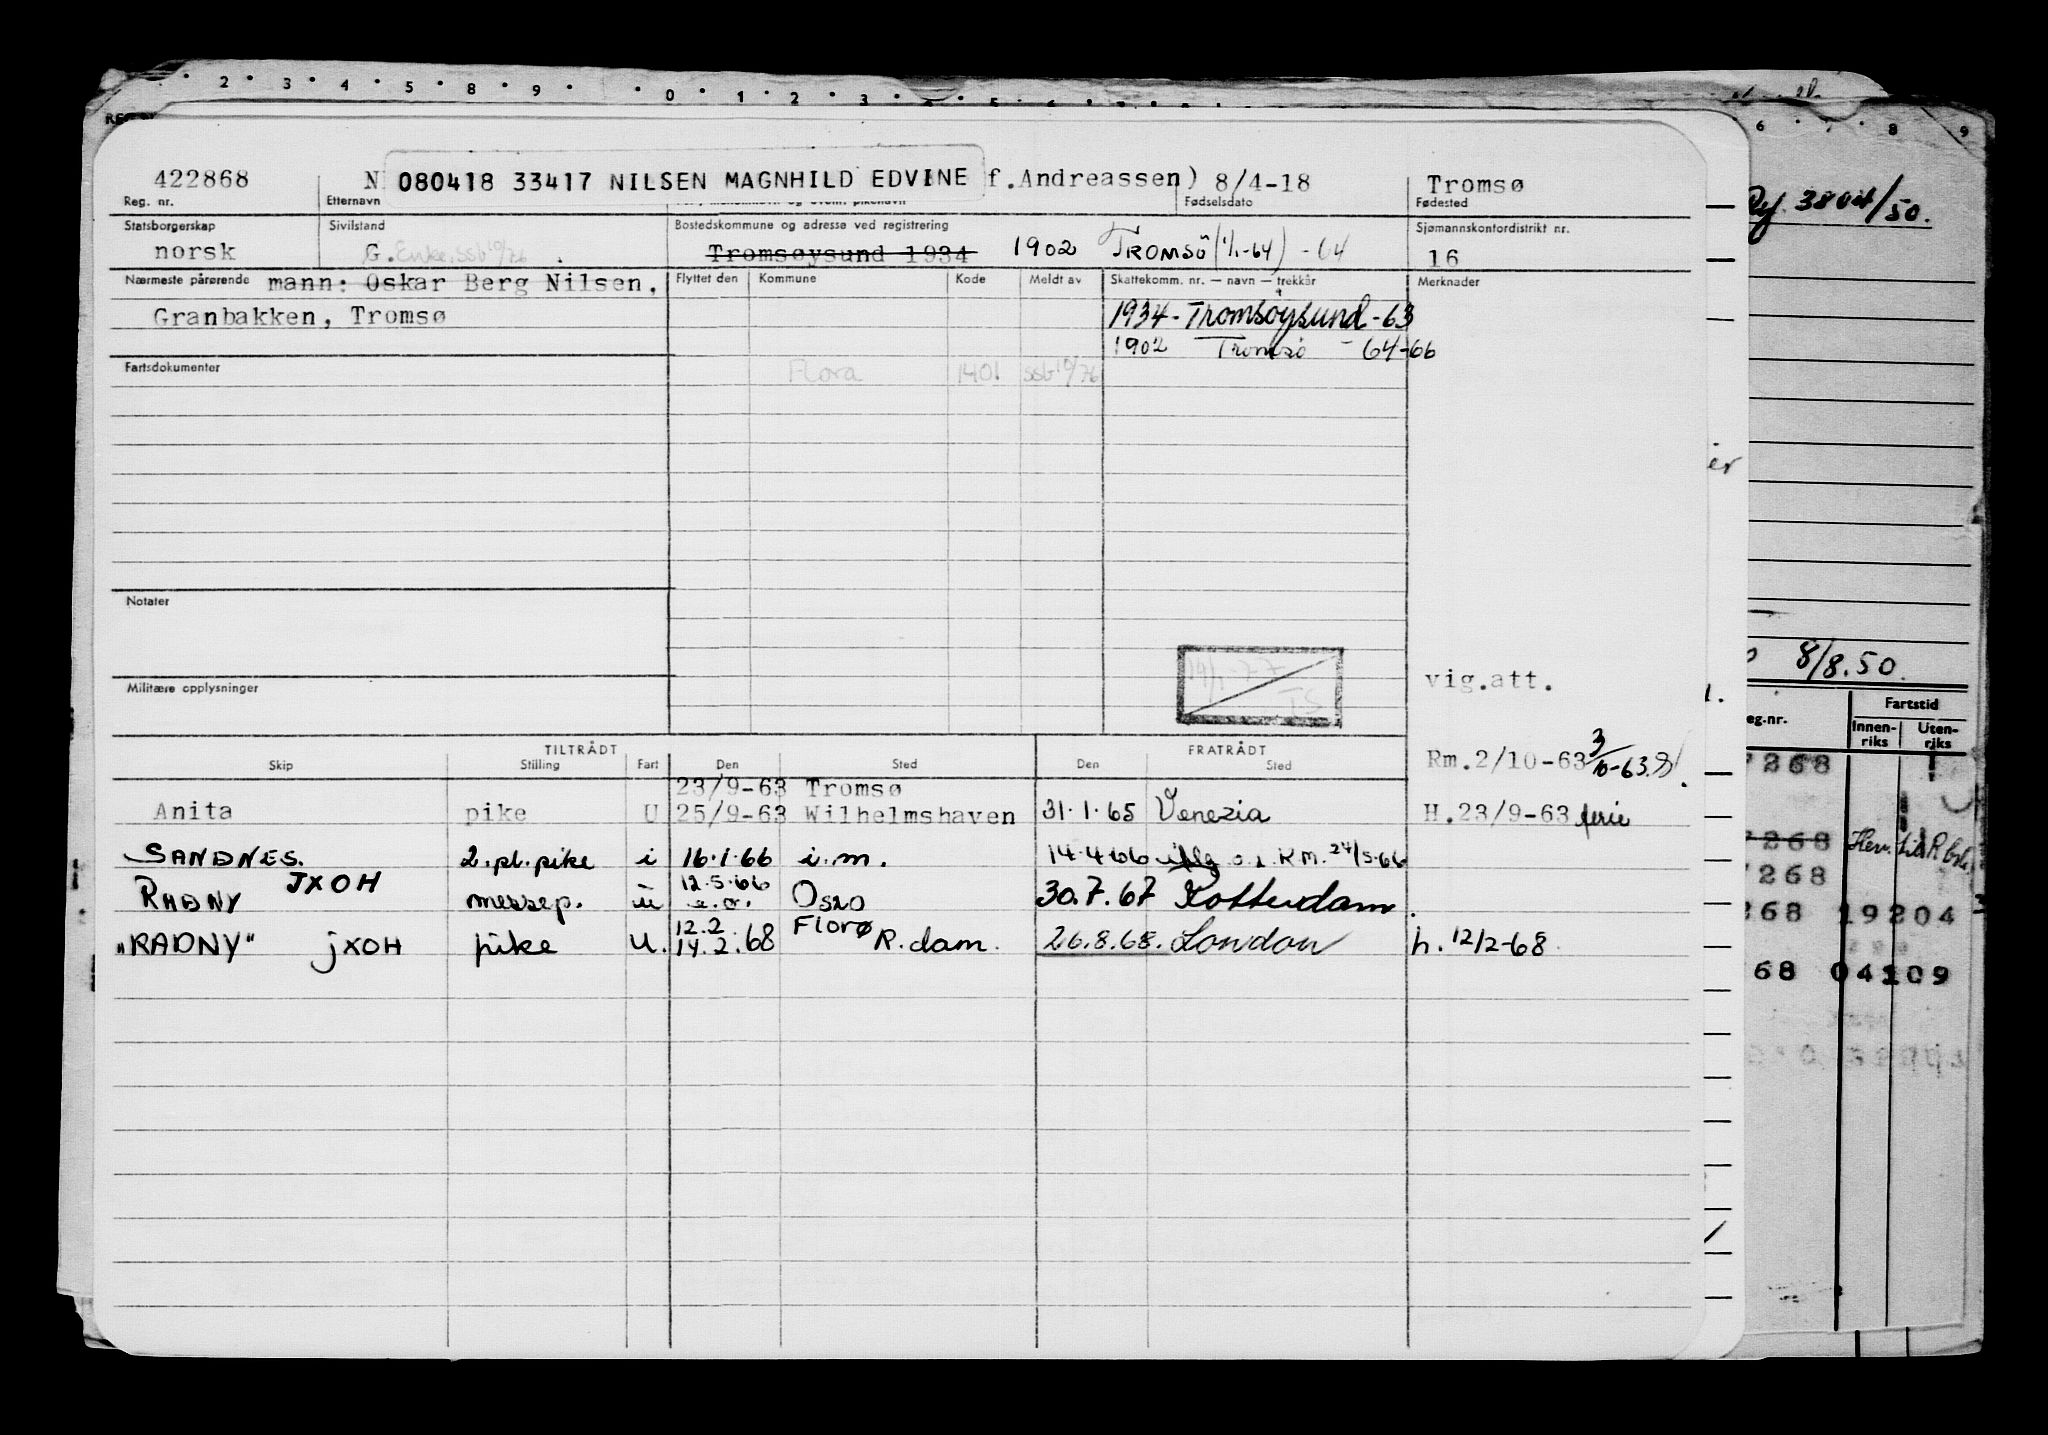 2 3 4 5 8 9 0 1 2 3 4 5 6
6 7 8 9
422868 N 080418 33417 NILSEN MAGNHILD EDVINE f.Andreassen) 8/4-18 Tromsø
Reg. nr. Etternavn Fødselsdato Fødested
Statsborgerskap Sivilstand Bostedskommune og adresse ved registrering Sjømannskontordistrikt nr.
norsk G. Enke. ssb 10/76 Tromsøysund 1934 1902 TROMSÖ (1/1-64) - 64 16
Nærmeste pårørende mann: Oskar Berg Nilsen, Flyttet den Kommune Kode Meldt av Skattekomm. nr. — navn — trekkår Merknader
Granbakken, Tromsø 1934 - Tromsøysund - 63
1902 Tromsø - 64-66
Fartsdokumenter Flora 1401 ssb 10/76
Notater
Militære opplysninger
19/1-77 TS
vig.att.
TILTRÅDT FRATRÅDT
Rm.2/10-63 3/10-63.
Skip Stilling Fart Den Sted Den Sted
23/9-63 Tromsø
Anita pike U 25/9-63 Wilhelmshaven 31.1.65 Venezia H.23/9-63 ferie
SANDNES. 2.pl.pike i 16.1.66 i.m. 14.4.66 R.M. 24/5-66
RADNY JXOH messep. u 12.5.66 Oslo 30.7.67 Rotterdam.
12.2. Florø
"RADNY" JXOH pike U. 14.2.68 R.dam. 26.8.68. London h. 12/2-68
Ref. 3804/50.
8/8.50.
eg.nr. Fartstid
Innen-riks Uten-riks
268
268
268
268 19204
68 04109